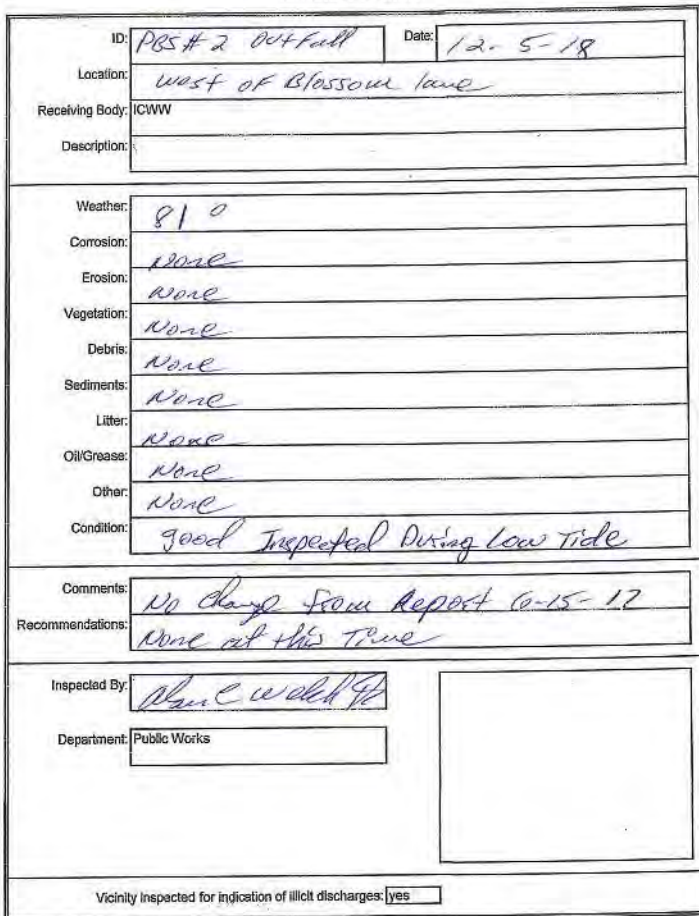 ID: PBS # 2 Outfall Date: 12-5-18
Location: west of Blossom lane
Receiving Body: ICWW
Description:
Weather: 81°
Corrosion: None
Erosion: None
Vegetation: None
Debris: None
Sediments: None
Litter: None
Oil/Grease: None
Other: None
Condition: good Inspected During Low Tide
Comments: No change from Report 6-15-17
Recommendations: None at this Time
Inspected By:
Department: Public Works
Vicinity Inspected for indication of illicit discharges: yes